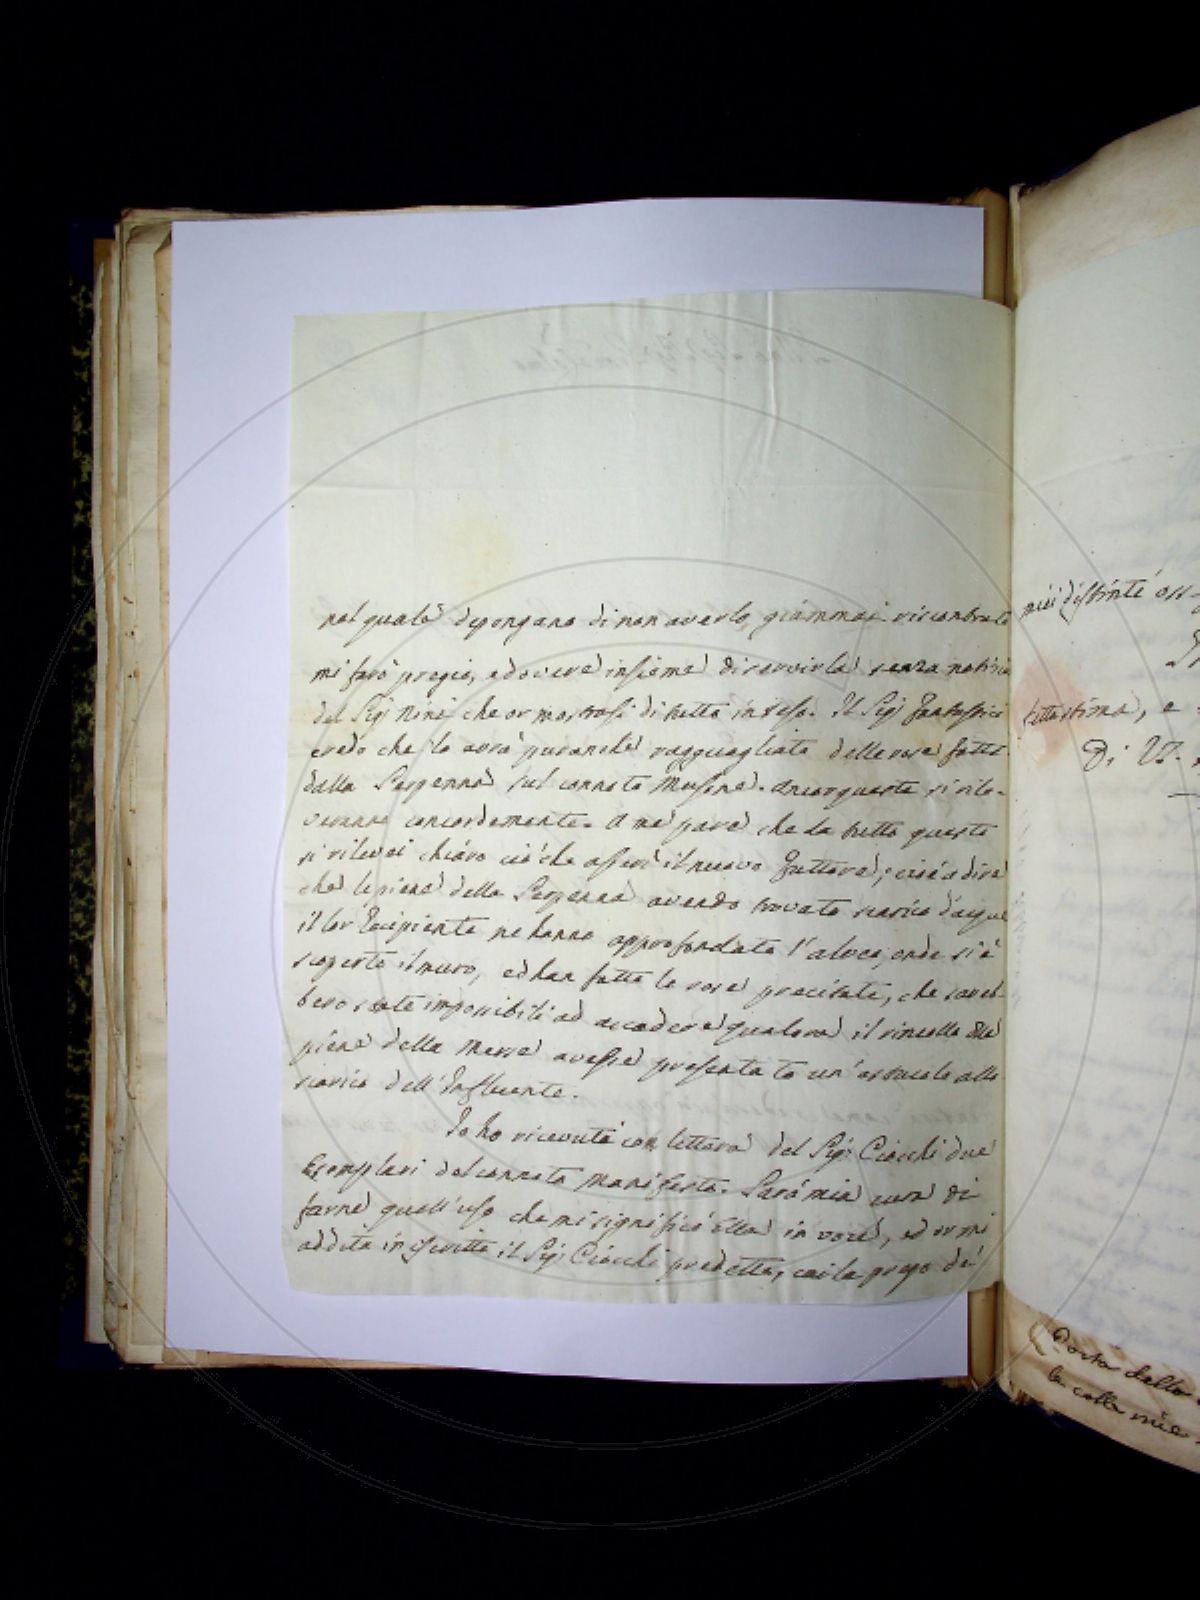 nel quale depongano di non averlo giammai riscontrato
mi farò pregio, e dovere insieme di servirla senza notizia
del Sig.r Nini che or mostrasi di tutto inteso. Il Sig.r Fantastici
credo che lo avrà puranche ragguagliato delle rose fatte
dalla Serpenna sul connoto Musone. Ancor queste si rile-
veranno concordemente. A me pare che da tutto questo
si rilevi chiaro ciò che asserì il nuovo Fattore; cioè a dire
che le piene della Serpenna avendo trovato scarico d'acque
il lor Recipiente ne hanno approfondato l'alveo, onde si è
scoperto il muro, ed han fatte le rose precitate, che sareb-
bero state impossibili ad accadere qualora il rincollo delle
piene della Merse avesse presentato un'ostacolo allo
scarico dell'Influente.
Io ho ricevute con lettera del Sig.r Ciocchi due
Esemplari del connoto Manifesto. Sarà mia cura di
farne quell'uso che mi significò Ella in voce, ed or mi
addita in iscritto il Sig.r Ciocchi predetto, cui la prego de'
più distinti oss
tutta stima, e
Di V.S.
Porta dello
la colla mia